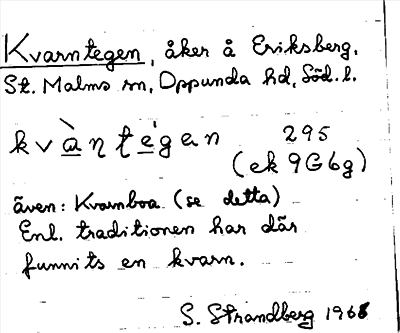 Kvarntegen, åker å Eriksberg,
St. Malms sn, Oppunda hd, Söd. l.
kvàṇtégan 295
(ek 9G6g)
även: Kvarnboa (se detta)
Enl. traditionen har där
funnits en kvarn.
S. Strandberg 1968